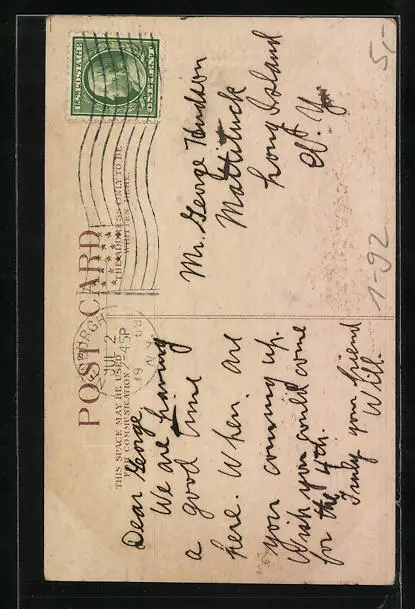 U.S. POSTAGE
ONE CENT
POST CARD
THIS SPACE MAY BE USED
FOR COMMUNICATION
THE ADDRESS ONLY TO BE
WRITTEN HERE.
JUL 2
45P
N.Y.
Dear George
We are having
a good time
here. When are
you coming up.
Wish you could come
for the 4th.
Truly your friend
Will.
Mr. George Hudson
Mattituck
Long Island
N. Y.
5,-
1-92